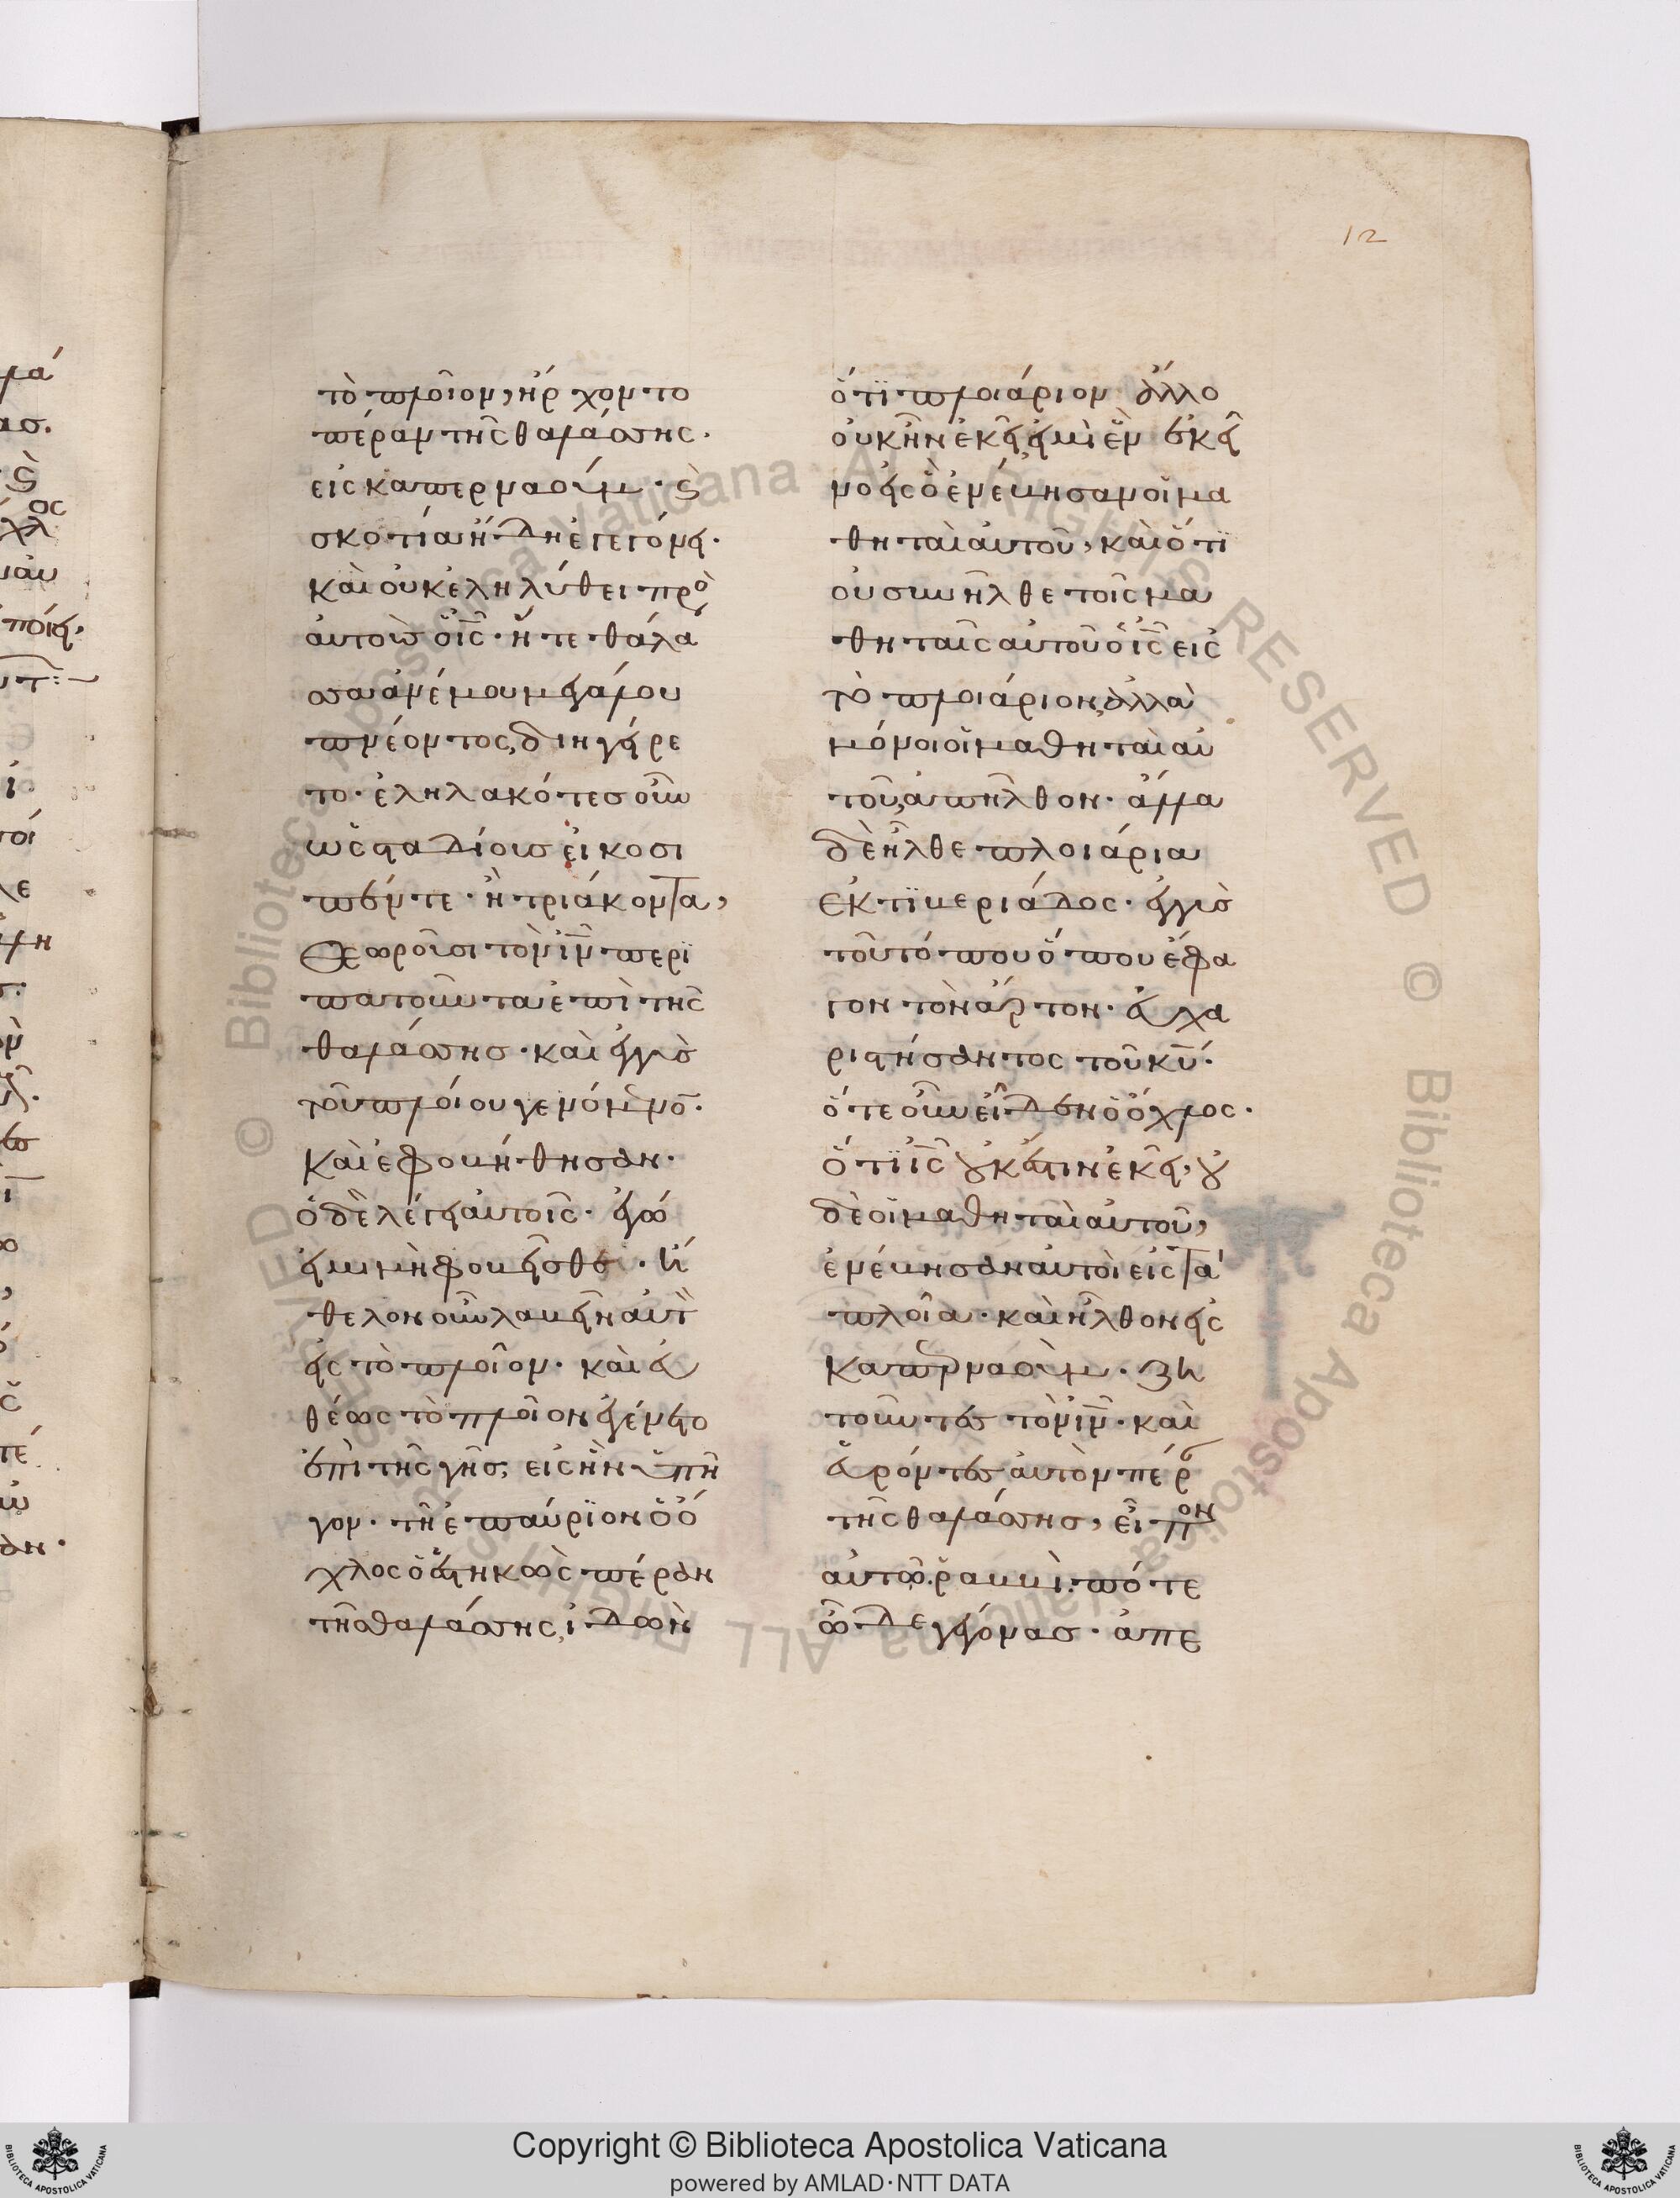 12
τὸ πλοῖον, ἤρχοντο
πέραν τῆς θαλάσσης·
εἰς καπερναούμ· ϗ
σκοτία ἤδη ἐγεγόνει·
καὶ οὐκ ἐληλύθει πρὸ
αὐτοὺσ ὁ ις· ἥ τε θάλα
σσα ἀνέμου μεγάλου
πνέοντος, διηγείρε
το· ἐληλακότεσ οὖν
ὡς σταδίουσ εἴκοσι
πέντε· ἢ τριάκοντα,
Θεωροῦσι τὸν ιν περι
πατοῦντα ἐπὶ τῆς
θαλάσσησ· καὶ ἐγγὺσ
τοῦ πλοίου γενόμενον·
Καὶ ἐφοβήθησαν·
ὁ δὲ λέγει αὐτοῖς· ἐγώ
εἰμι μὴ φοβεῖσθε· ἤ
θελον οὖν λαβεῖν αὐτὸν
εἰς τὸ πλοῖον· καὶ εὐ
θέως τὸ πλοῖον ἐγένετο
ἐπὶ τῆς γῆσ, εἰς ἣν ὑπῆ
γον· τῆ ἐπαύριον ὁ ὄ
χλος ὁ ἑστηκὼς πέραν
τῆσ θαλάσσης, ἰδὼν
ὅτι πλοιάριον ἄλλο
οὐκ ἦν ἐκεῖ εἰ μὴ ἓν ἐκεῖ
νο εἰς ὃ ἐνέβησαν οἱ μα
θηταὶ αὐτοῦ, καὶ ὅτι
οὐ συνῆλθε τοῖς μα
θηταῖς αὐτοῦ ὁ ις εἰς
τὸ πλοιάριον, ἀλλὰ
μόνοι οἱ μαθηταὶ αὐ
τοῦ, ἀπῆλθον· ἄλλα
δὲ ἦλθε πλοιάρια
ἐκ τιβεριάδος· ἐγγὺσ
τοῦ τόπου ὅπου ἔφα
γον τὸν ἄρτον· εὐχα
ριστήσαντος τοῦ κυ·
ὅτε οὖν εἶδεν ὁ ὄχλος·
ὅτι ις οὐκ ἔστιν ἐκεῖ, οὐ
δὲ οἱ μαθηταὶ αὐτοῦ,
ἐνέβησαν αὐτοὶ εἰς τὰ
πλοῖα· καὶ ἦλθον εἰς
Καπερναούμ· ζη
τοῦντες τὸν ιν· καὶ
εὑρόντες αὐτὸν πέρ
τῆς θαλάσσησ, εἶπον
αὐτῶ· ῥαββὶ· πότε
ὧδε γέγονασ· ἀπε
Copyright © Biblioteca Apostolica Vaticana
powered by AMLAD·NTT DATA